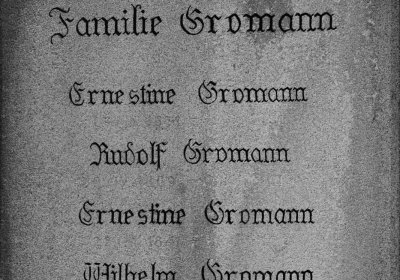 Familie Gromann
Ernestine Gromann
Rudolf Gromann
Ernestine Gromann
Wilhelm Gromann